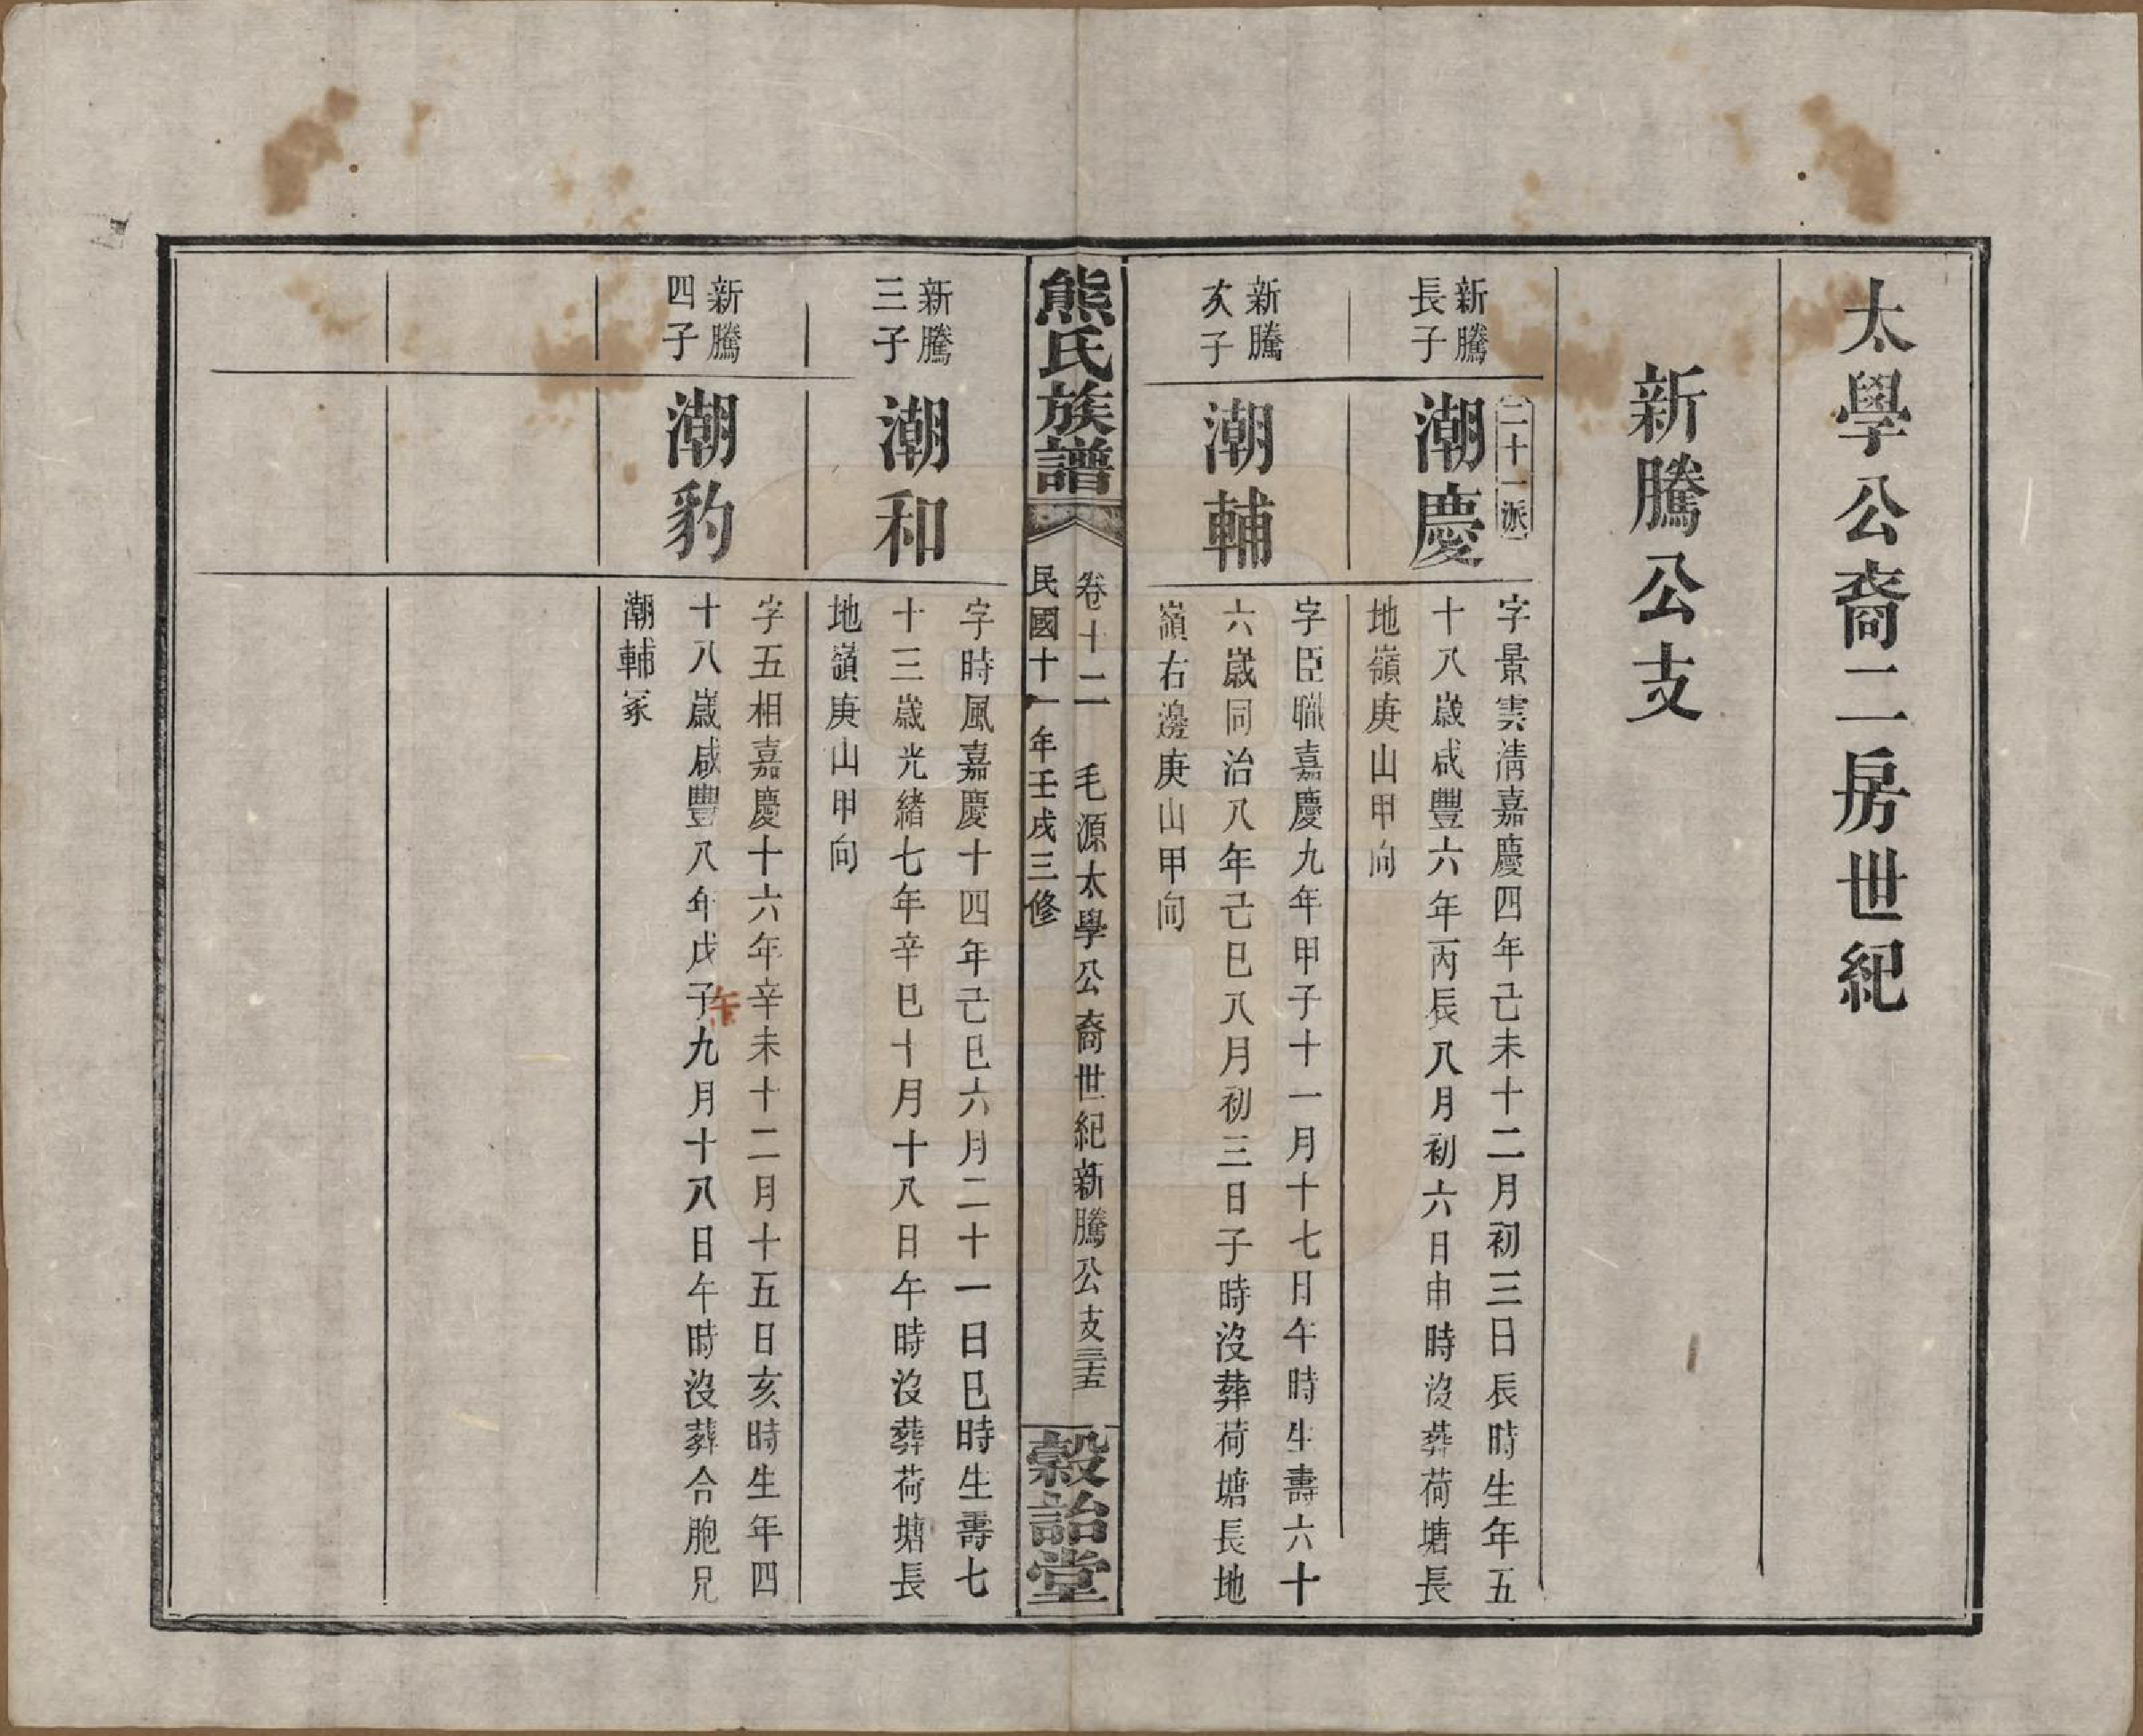 太學公裔二房世紀
新騰公支
二十一派
新騰
長子
潮慶
字景雲清嘉慶四年己未十二月初三日辰時生年五
十八歲咸豐六年丙辰八月初六日申時沒葬荷塘長
地嶺庚山甲向
新騰
次子
潮輔
字臣職嘉慶九年甲子十一月十七日午時生壽六十
六歲同治八年己巳八月初三日子時沒葬荷塘長地
嶺右邊庚山甲向
熊氏族譜
卷十二 毛源太學公裔世紀新騰公支 三十五
民國十一年壬戌三修
榖詒堂
新騰
三子
潮和
字時風嘉慶十四年己巳六月二十一日巳時生壽七
十三歲光緒七年辛巳十月十八日午時沒葬荷塘長
地嶺庚山甲向
新騰
四子
潮豹
字五相嘉慶十六年辛未十二月十五日亥時生年四
十八歲咸豐八年戊子九月十八日午時沒葬合胞兄
午
潮輔冢